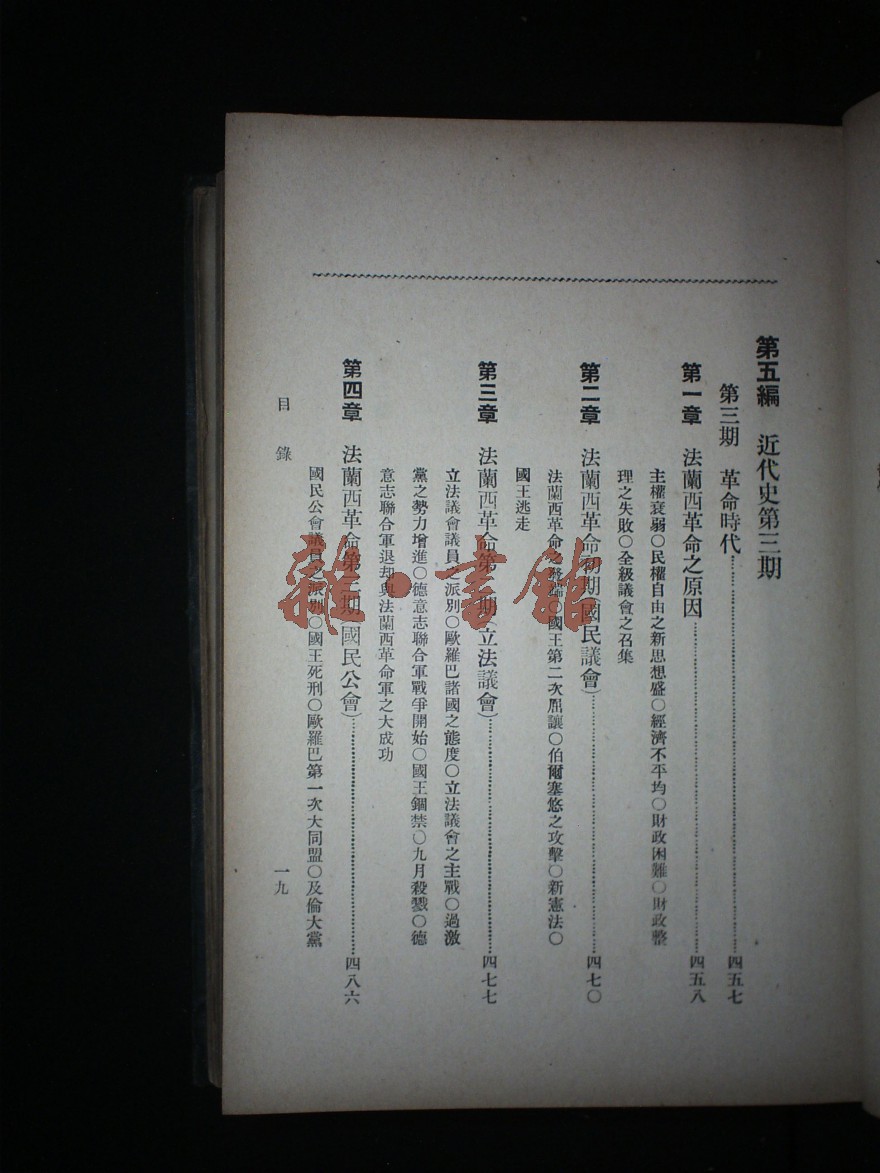 第五編　近代史第三期
第三期　革命時代……四五七
第一章　法蘭西革命之原因……四五八
主權衰弱〇民權自由之新思想盛〇經濟不平均〇財政困難〇財政整
理之失敗〇全級議會之召集
第二章　法蘭西革命初期(國民議會)……四七〇
法蘭西革命之發端〇國王第二次屈讓〇伯爾塞悠之攻擊〇新憲法〇
國王逃走
第三章　法蘭西革命第二期(立法議會)……四七七
立法議會議員之派別〇歐羅巴諸國之態度〇立法議會之主戰〇過激
黨之勢力增進〇德意志聯合軍戰爭開始〇國王錮禁〇九月殺戮〇德
意志聯合軍退却與法蘭西革命軍之大成功
第四章　法蘭西革命第三期(國民公會)……四八六
國民公會議員之派別〇國王死刑〇歐羅巴第一次大同盟〇及倫大黨
目錄
一九
雜·書館